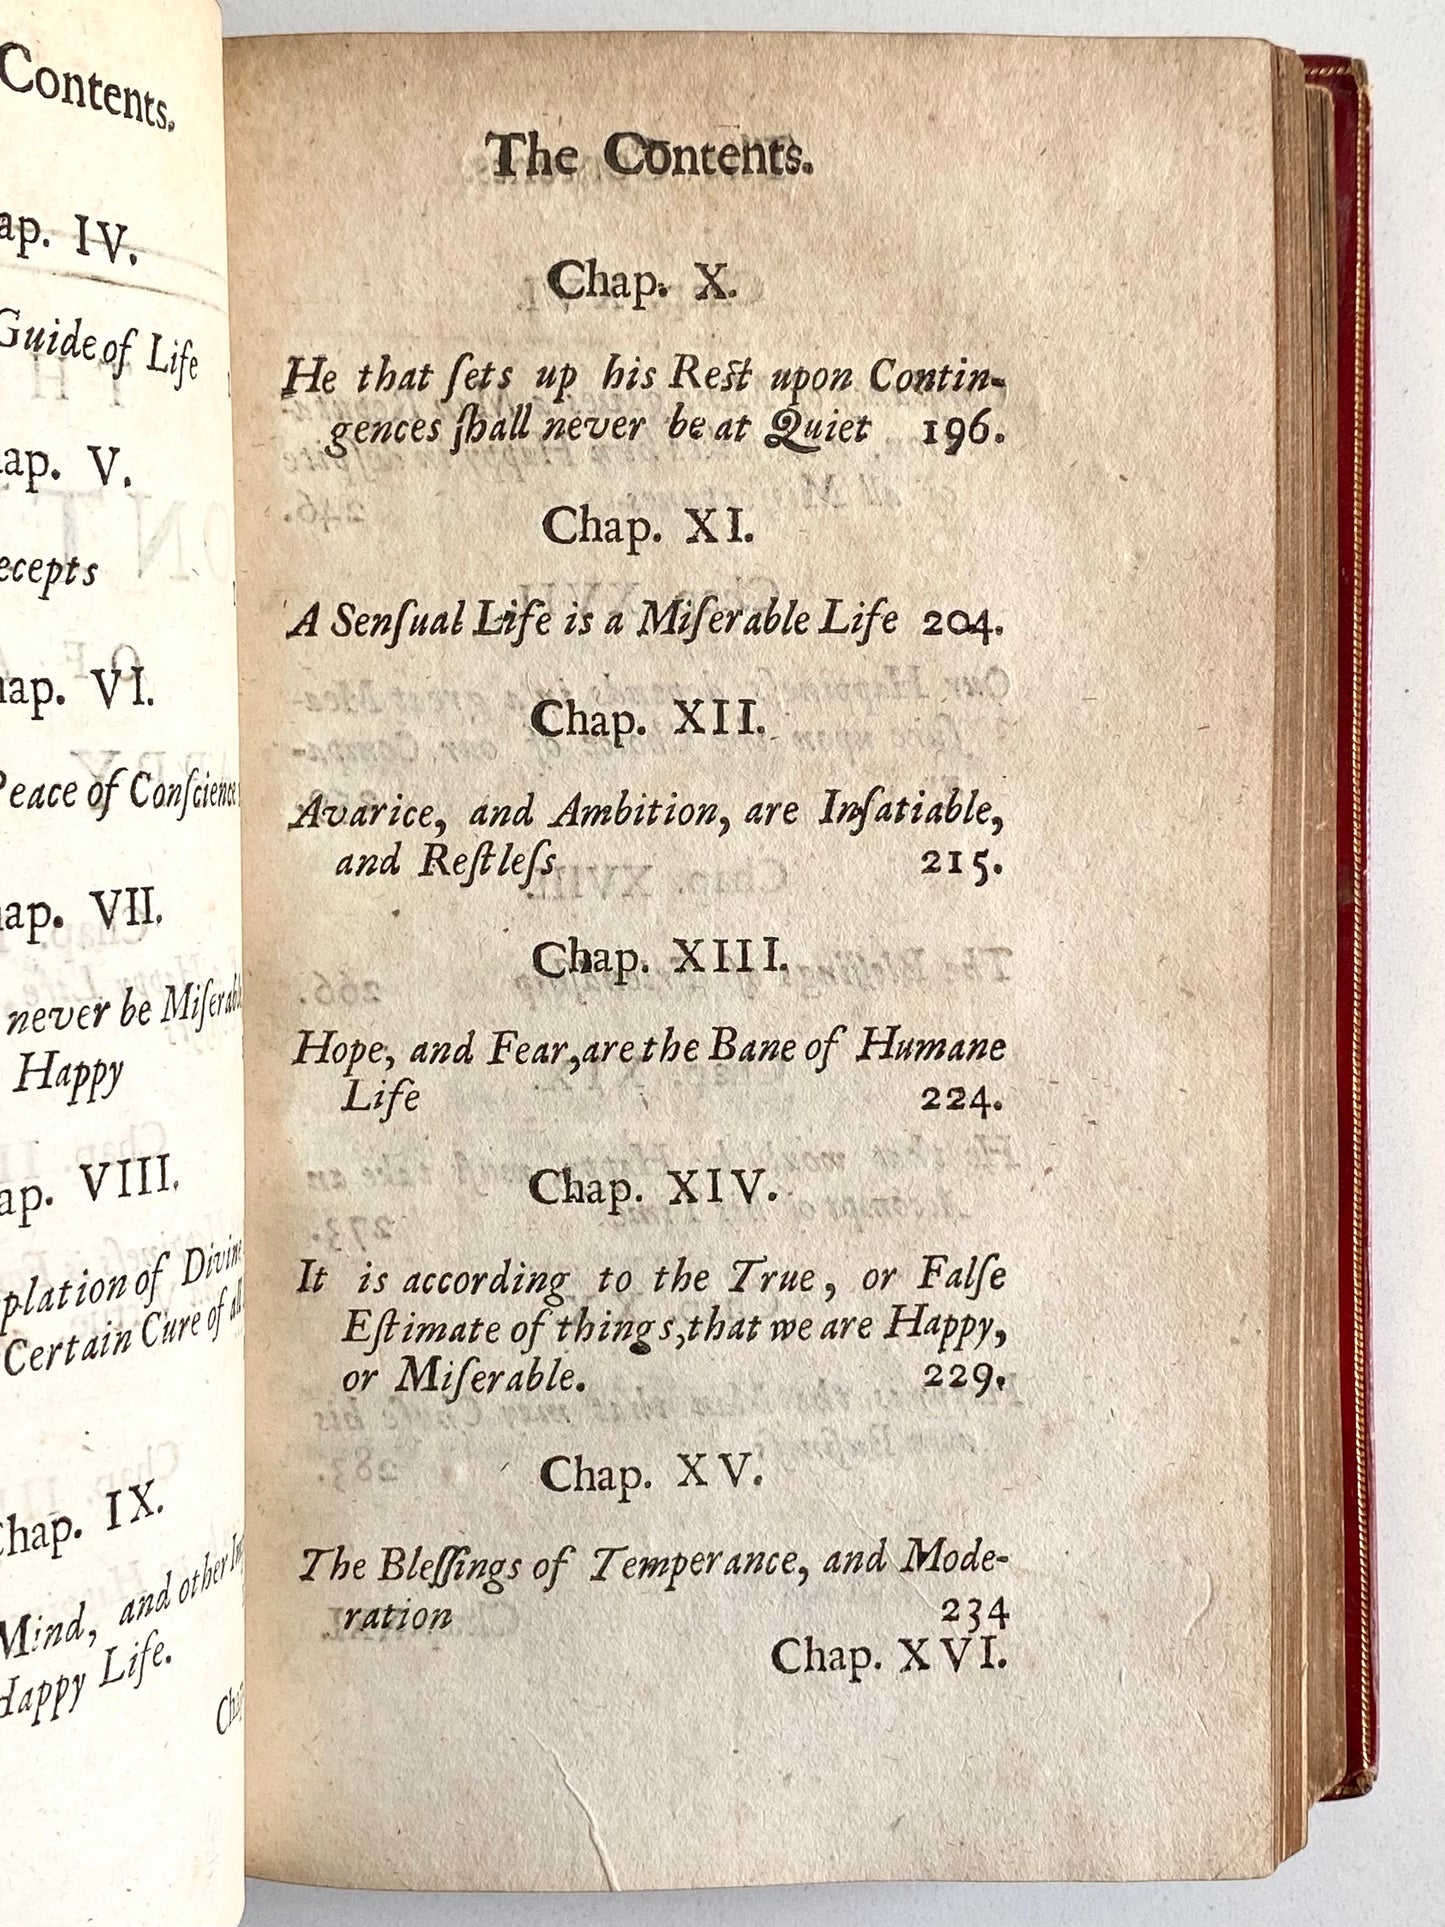 Contents.
ap. IV.
Guide of Life
ap. V.
ecepts
ap. VI.
Peace of Conſcience
ap. VII.
never be Miſerable
Happy
ap. VIII.
plation of Divine
Certain Cure of all
Chap. IX.
Mind, and other
Happy Life.
The Contents.
Chap. X.
He that ſets up his Reſt upon Contin-
gences ſhall never be at Quiet 196.
Chap. XI.
A Senſual Life is a Miſerable Life 204.
Chap. XII.
Avarice, and Ambition, are Inſatiable,
and Reſtleſs 215.
Chap. XIII.
Hope, and Fear, are the Bane of Humane
Life 224.
Chap. XIV.
It is according to the True, or Falſe
Eſtimate of things, that we are Happy,
or Miſerable. 229.
Chap. XV.
The Bleſſings of Temperance, and Mode-
ration 234
Chap. XVI.